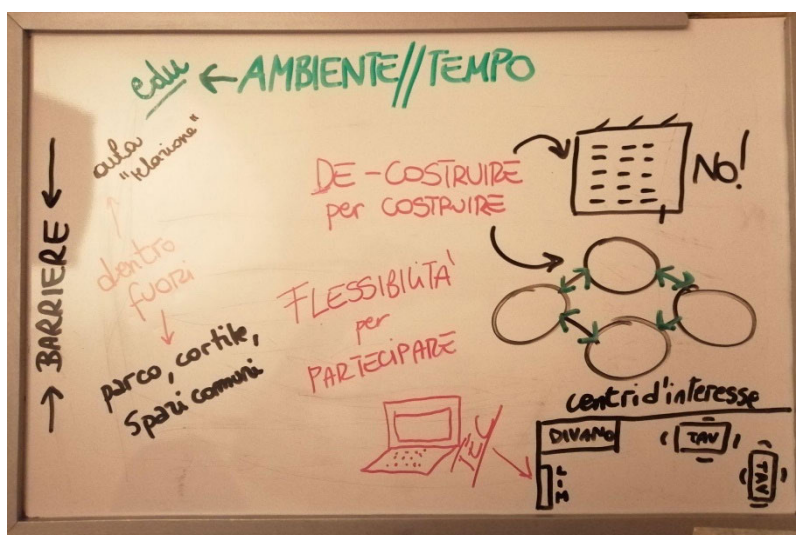 edu ← AMBIENTE//TEMPO
aula
"relazione"
→ BARRIERE ←
dentro
fuori
parco, cortile,
spazi comuni
DE-COSTRUIRE
per COSTRUIRE
NO!
FLESSIBILITÀ
per
PARTECIPARE
centri d'interesse
TEC
DIVANO
TAV
LIM
TAV